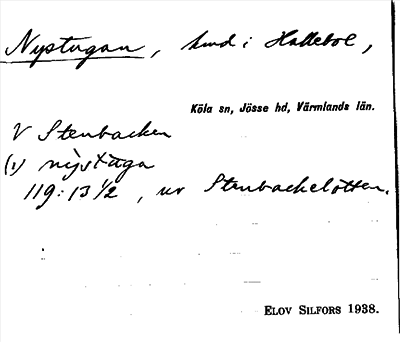 Nystugan, hmd i Hallebol,
Köla sn, Jösse hd, Värmlands län.
V Stenbacken
(1) nystuga
119:13 1/2, ur Stenbackelotten.
ELOV SILFORS 1938.